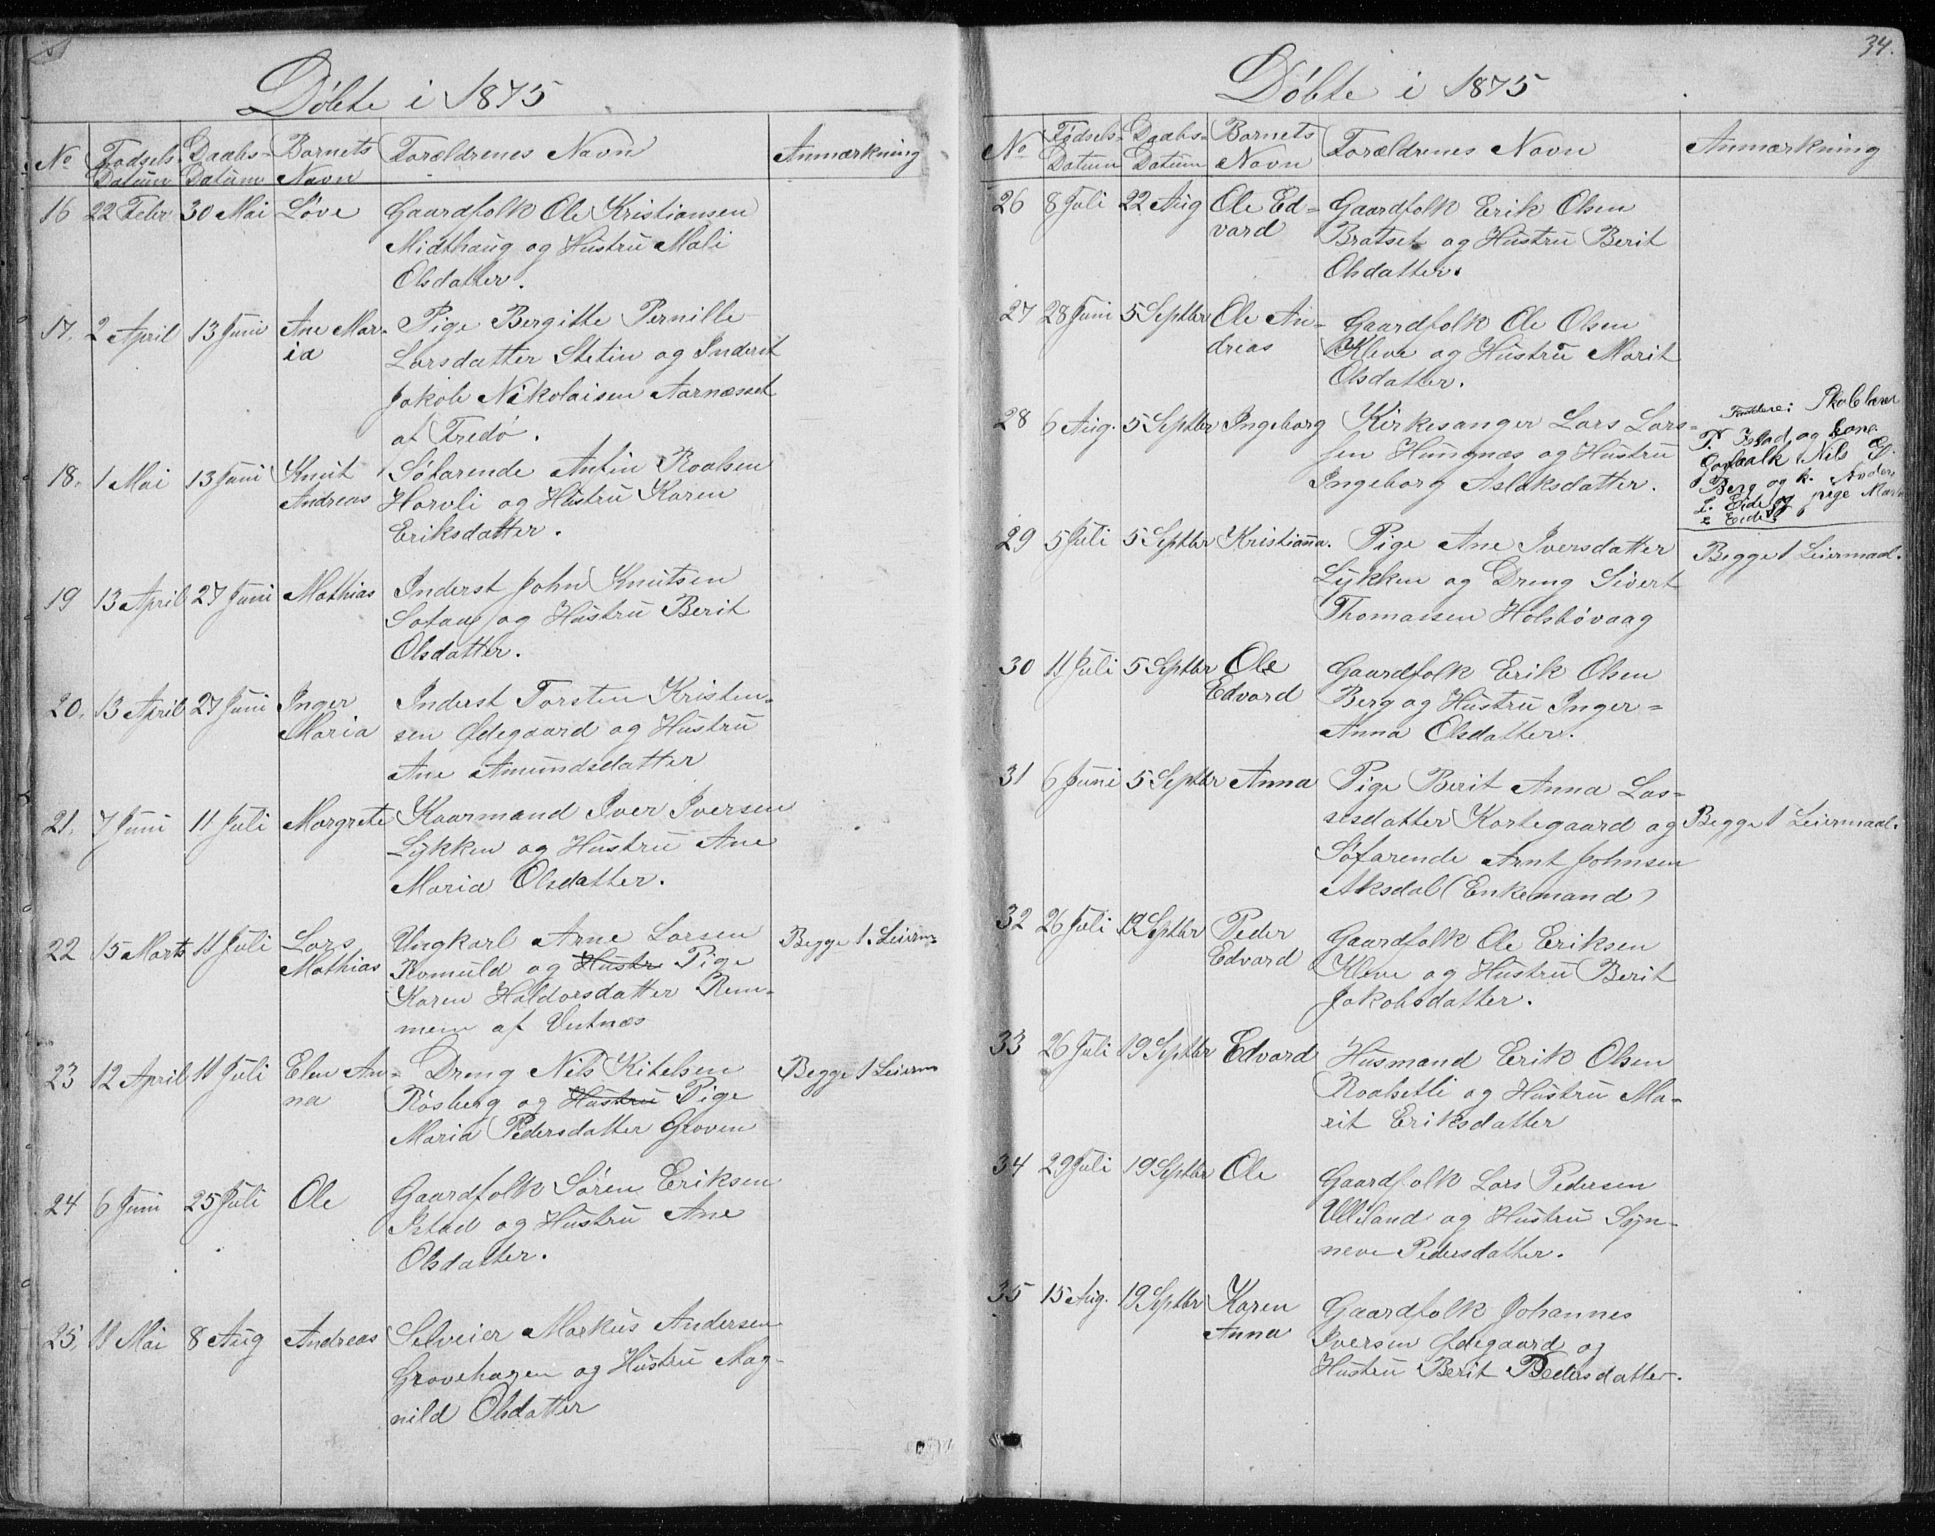 Døbte i 1875
No Fødsels Datum Daabs- Datum Barnets Navn Forældrenes Navn Anmærkning
16 22 Febr 30 Mai Løve Gaardfolk Ole Kristiansen
Midthaug og Hustru Mali
Olsdatter.
17. 2 April 13 Juni Ane Mar- Pige Bergitte Pernille
ia Larsdatter Stetin og Inderst
Jakob Nikolaisen Aarnæsset
af Fredø.
18. 1 Mai 13 Juni Knut Søfarende Antin Roalsen
Andreas Harvli og Hustru Karen
Eriksdatter.
19 13 April 27 Juni Mathias Inderst John Knutsen
og Hustru Berit
Olsdatter.
20. 13 April 27 Juni Inger Inderst Torsten Kristen-
Maria sen Ødegaard og Hustru
Ane Amundsdatter
21. 7 Juni 11 Juli Margrete Kaarmand Iver Iversen
Lykken og Hustru Ane
Maria Olsdatter.
22 15 Marts 11 Juli Lars Ungkarl Arne Larsen Begge 1. Leierm
Mathias Romuld og Hustr Pige
Karen Haldorsdatter Rem-
mem af
23 12 April 11 Juli Elen An- Dreng Nils Kitelsen Begge 1 Leierm
na Røsberg og Hustru Pige
Maria Pedersdatter Groven
24 6 Juni 25 Juli Ole Gaardfolk Søren Eriksen
Istad og Hustru Ane
Olsdatter.
25. 11 Mai 8 Aug Andreas Selveier Markus Andersen
Grovehagen og Hustru Mag-
nild Olsdatter
34.
Døbte i 1875
No Fødsels- Datum Daabs- Datum Barnets Navn Forældrenes Navn Anmærkning
26 8 Juli 22 Aug Ole Ed- Gaardfolk Erik Olsen
vard Bratset og Hustru Berit
Olsdatter.
27 28 Juni 5 Septbr Ole An- Gaardfolk Ole Olsen
dreas Kleve og Hustru Marit
Olsdatter.
28 6 Aug. 5 Septbr Ingeborg Kirkesanger Lars Lars-
sen Hungnæs og Hustru
Ingeborg Aslaksdatter.
Faddere: Skolelærer
P. Istad og kone
Nils
Berg og k.
L. Eide og pige
Eide
29 5 Juli 5 Septbr Kristianna. Pige Ane Iversdatter Begge 1 Leiermaal.
Lykken og Dreng Sivert
Thomassen Holsbøvaag
30 11 Juli 5 Septbr Ole Gaardfolk Erik Olsen
Edvard Berg og Hustru Inger-
Anna Olsdatter.
31 6 Juni 5 Septbr Anna Pige Berit Anna Las-
sesdatter Kortegaard og Begge 1 Leiermaal.
Søfarende Arnt Johnsen
Aksdal (Enkemand)
32 26 Juli 19 Septbr Peder Gaardfolk Ole Eriksen
Edvard Kleve og Hustru Berit
Jakobsdatter.
33 26 Juli 19 Septbr Edvard Husmand Erik Olsen
Roalsetli og Hustru Ma-
rit Eriksdatter
34 29 Juli 19 Septbr Ole Gaardfolk Lars Pedersen
Ulleland og Hustru Syn-
neve Pedersdatter.
35 15 Aug. 19 Septbr Karen Gaardfolk Johannes
Anna Iversen Ødegaard og
Hustru Berit Pedersdatter.